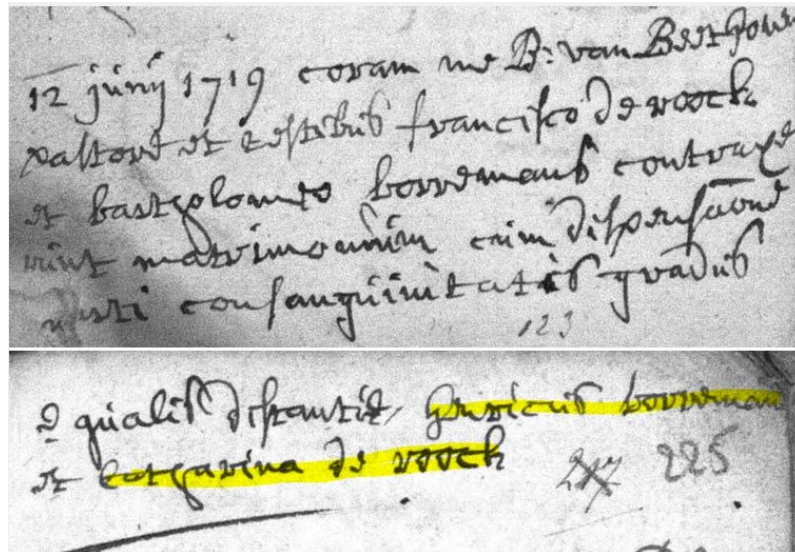 12 junij 1719 coram me B: van Beethoven
pastore et testibus francisco de roock
et bartholomeo borremans contraxe
runt matrimonium cum dispensaone
consanguinitatis gradus
123
equalis distantie, henricus borreman
et catharina de roock
217 225